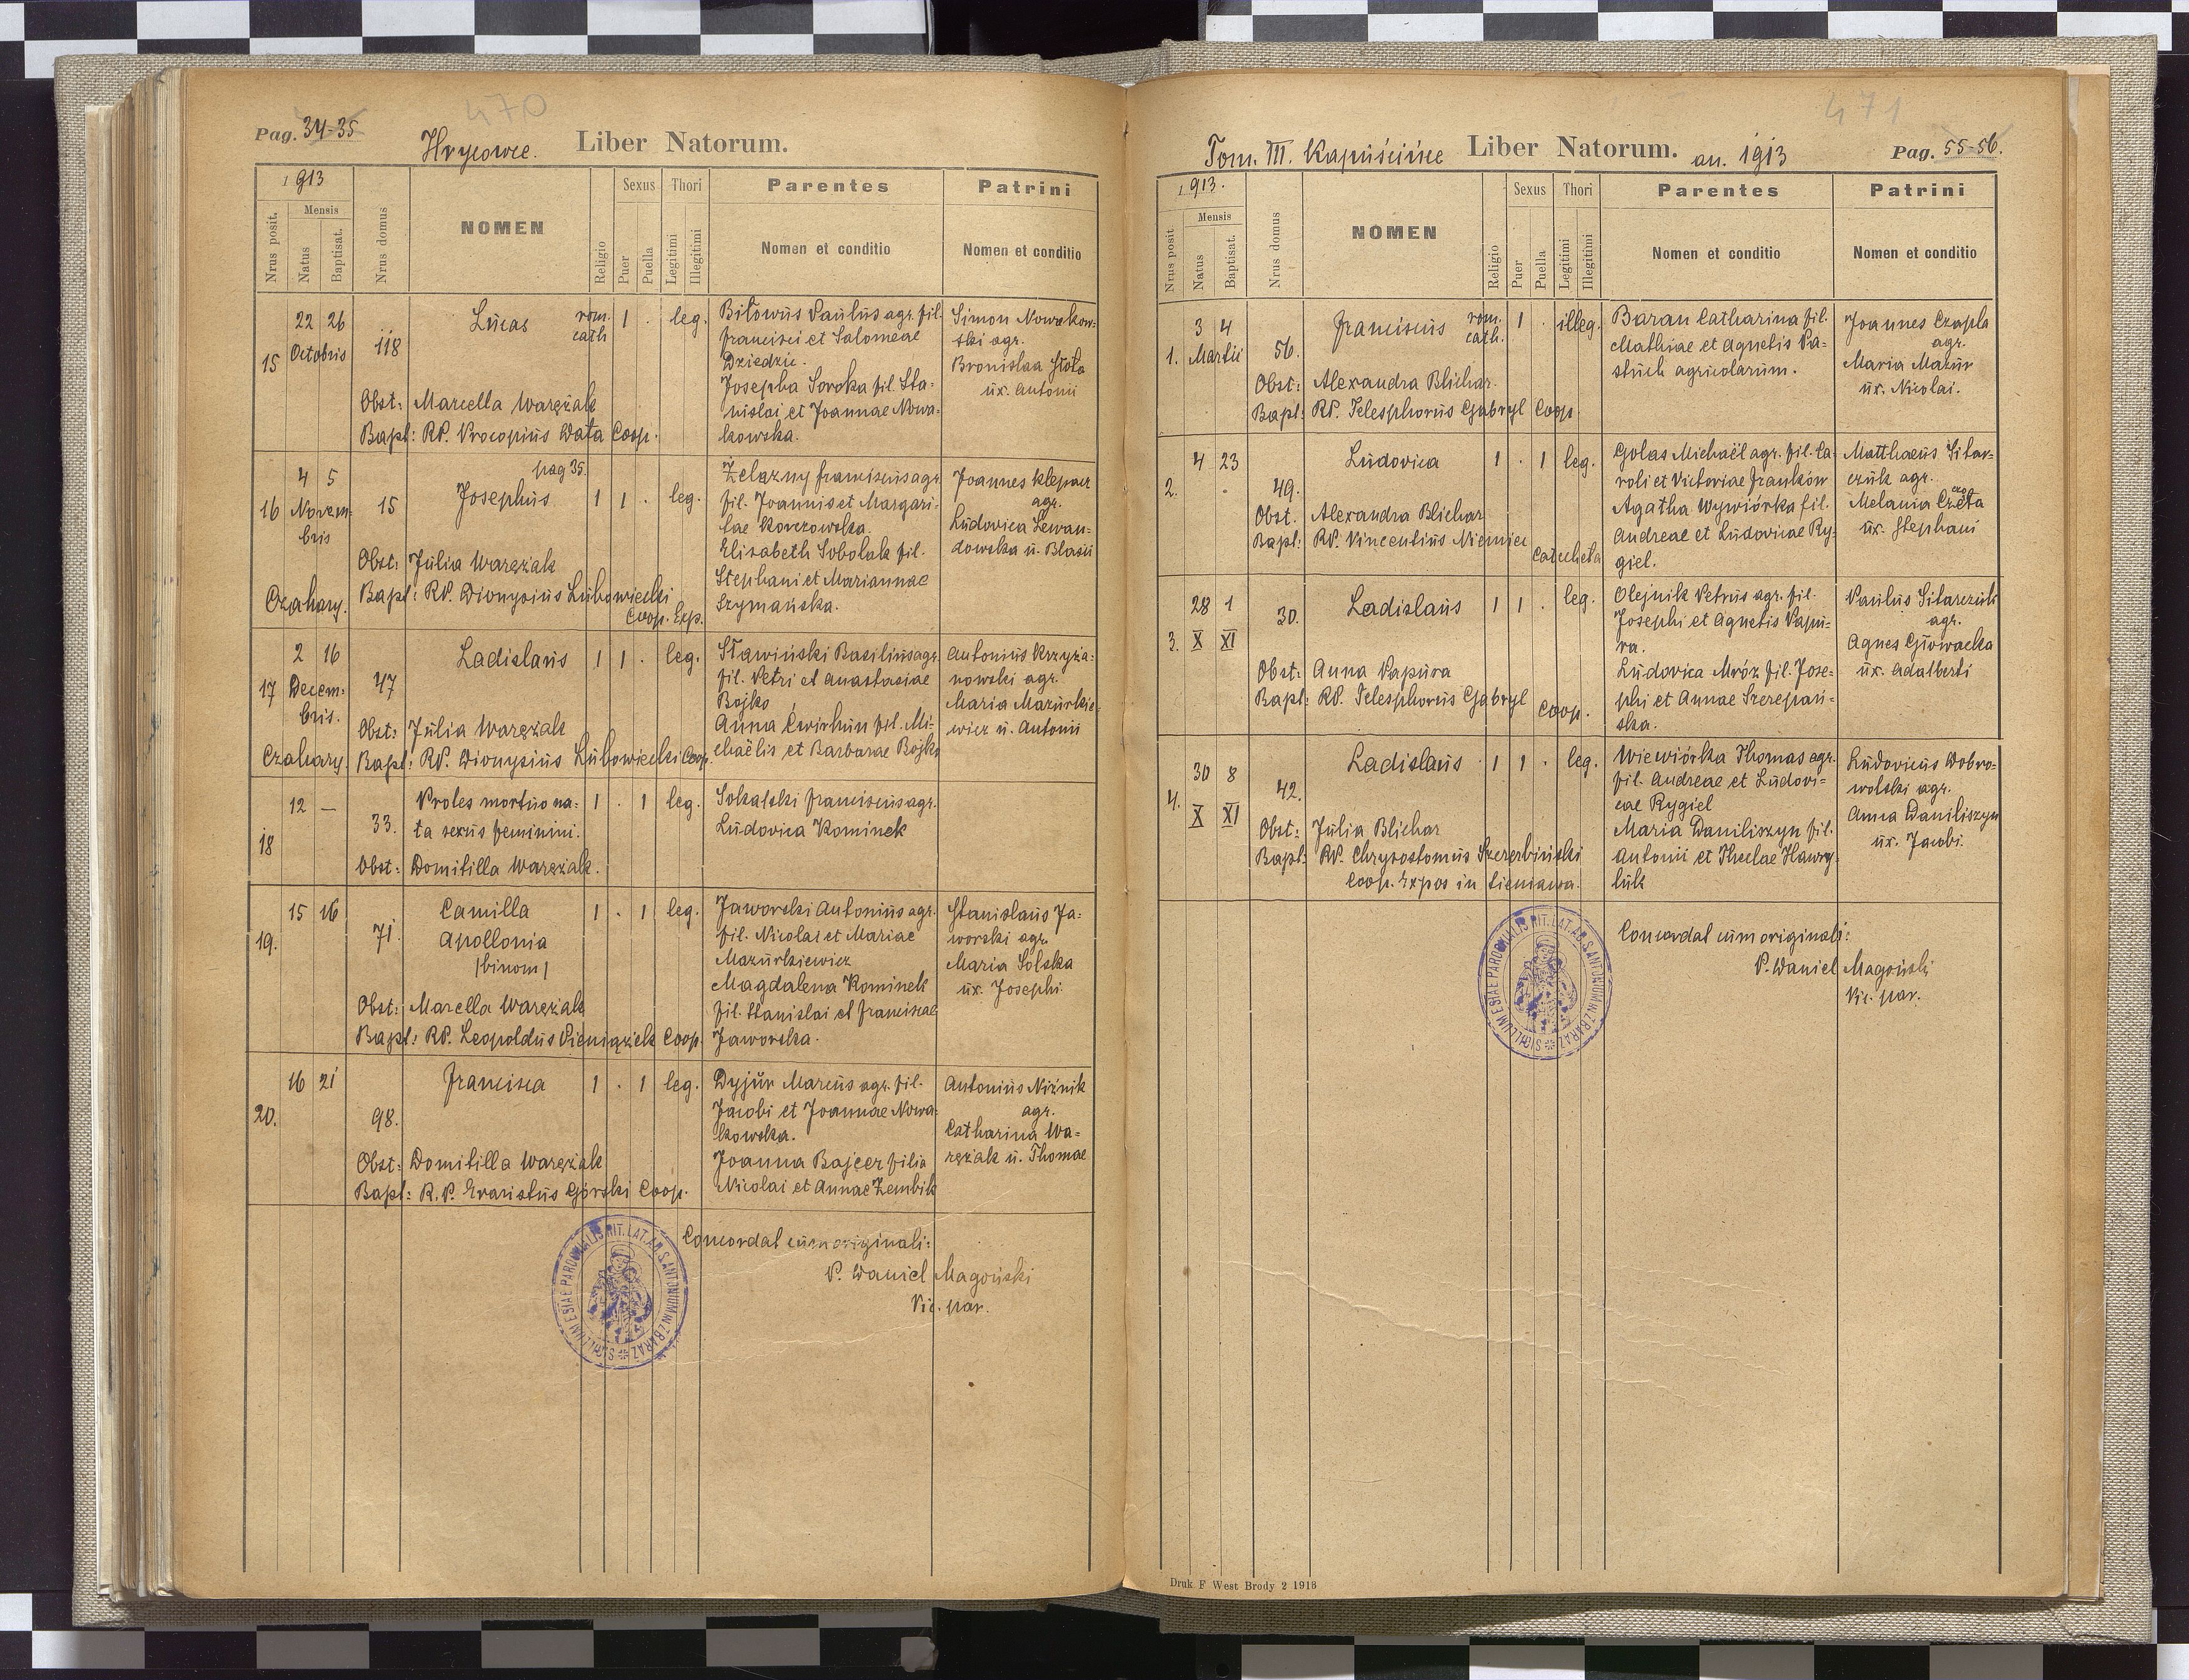 470
Pag. 34-35
Hrycowce. Liber Natorum.
1913
Nrus posit.
Mensis
Natus
Baptisat.
Nrus domus
NOMEN
Religio
Sexus
Puer
Puella
Thori
Legitimi
Illegitimi
Parentes
Nomen et conditio
Patrini
Nomen et conditio
15
22 26
Octobris
118
Lucas
rom.
cath
1 . leg.
Obst: Marcella Waręzak
Bapt: RP. Procopius Wata Coop.
Biłowus Paulus agr. fil.
Francisci et Salomeae
Dziedzic.
Josepha Soroka fil. Sta-
nislai et Joannae Nowa-
kowska.
Simon Nowakow-
ski agr.
Bronislaa Stota
ux. Antonii
pag 35.
16
4 5
Novem-
bris
15
Josephus
1 1 . leg.
Obst: Julia Waręzak
Czahary. Bapt: RP. Dionysius Lubowiecki
Coop. Exp.
Żelazny Franciscus agr.
fil. Joannis et Margari-
tae Korczowska.
Elisabeth Sobolak fil.
Stephani et Mariannae
Szymańska.
Joannes Klepacz
agr.
Ludovica Lewan-
dowska u. Blasii
17
2 16
Decem-
bris.
47
Ladislaus
1 1 . leg.
Obst: Julia Waręzak
Czahary. Bapt: RP. Dionysius Lubowiecki Coop.
Sławiński Basilius agr.
fil. Petri et Anastasiae
Bojko
Anna Ćwirhun fil. Mi-
chaëlis et Barbarae Bojko
Antonius Krzyża-
nowski agr.
Maria Mazurkie-
wicz u. Antonii
18
12 —
33.
Proles mortuo na-
ta sexus feminini.
1 . 1 leg.
Obst: Domitilla Waręzak.
Sokalski Franciscus agr.
Ludovica Kominek
19.
15 16
71.
Camilla
Apollonia
/binom/
1 . 1 leg.
Obst: Marcella Waręzak
Bapt: RP. Leopoldus Pieniążek Coop.
Jaworski Antonius agr.
fil. Nicolai et Mariae
Mazurkiewicz
Magdalena Kominek
fil. Stanislai et Franciscae
Jaworska.
Stanislaus Ja-
worski agr.
Maria Solska
ux. Josephi.
20.
16 21
98.
Francisca
1 . 1 leg.
Obst: Domitilla Waręzak
Bapt: R. P. Evaristus Górski Coop.
Dyjur Marcus agr. fil.
Jacobi et Joannae Nowa-
kowska.
Joanna Bajcer filia
Nicolai et Annae Zembik
Antonius Niźnik
agr.
Catharina Wa-
ręzak u. Thomae
Concordat cum originali:
P. Daniel Magoński
Vic. par.
SIGILLUM ECCLESIAE PAROCHIALIS RIT. LAT. AD S. ANTONIUM IN ZBARAZ
471
Tom. III. Kapuścińce Liber Natorum. an. 1913
Pag. 55-56.
1913.
Nrus posit
Mensis
Natus
Baptisat.
Nrus domus
NOMEN
Religio
Sexus
Puer
Puella
Thori
Legitimi
Illegitimi
Parentes
Nomen et conditio
Patrini
Nomen et conditio
1.
3 4
Martii
56.
Franciscus
rom.
cath.
1 . illeg.
Obst: Alexandra Blichar.
Bapt: RP. Telesphorus Gabryl Coop
Baran Catharina fil.
Mathiae et Agnetis Pa-
stuch agricolarum.
Joannes Czapla
agr.
Maria Mazur
ux. Nicolai.
2.
4 23
49.
Ludovica
1 . 1 leg.
Obst. Alexandra Blichar
Bapt: RP. Vincentius Niemiec
Catecheta
Golas Michaël agr. fil. Ca-
roli et Victoriae Franków
Agatha Wywiórka fil.
Andreae et Ludovicae Ry-
giel.
Matthaeus Sitar-
czuk agr.
Melania
ux. Stephani
3.
28 1
X XI
30.
Ladislaus
1 1 . leg.
Obst: Anna Papura
Bapt: RP. Telesphorus Gabryl Coop.
Olejnik Petrus agr. fil.
Josephi et Agnetis Papu-
ra.
Ludovica Mróz fil. Jose-
phi et Annae Szerepań-
ska.
Paulus Sitarczuk
agr.
Agnes Głowacka
ux. Adalberti
4.
30 8
X XI
42.
Ladislaus
1 1 . leg.
Obst: Julia Blichar
Bapt: RP. Chrysostomus Szczerbiński
Coop. Expos in Cieniawa.
Wiewiórka Thomas agr.
fil. Andreae et Ludovi-
cae Rygiel
Maria Daniliszyn fil.
Antonii et Theclae Hawry-
luk
Ludovicus Dobro-
wolski agr.
Anna Daniliszyn
ux. Jacobi.
Concordat cum originali:
P. Daniel Magoński
Vic. par.
SIGILLUM ECCLESIAE PAROCHIALIS RIT. LAT. AD S. ANTONIUM IN ZBARAZ
Druk F West Brody 2 1918